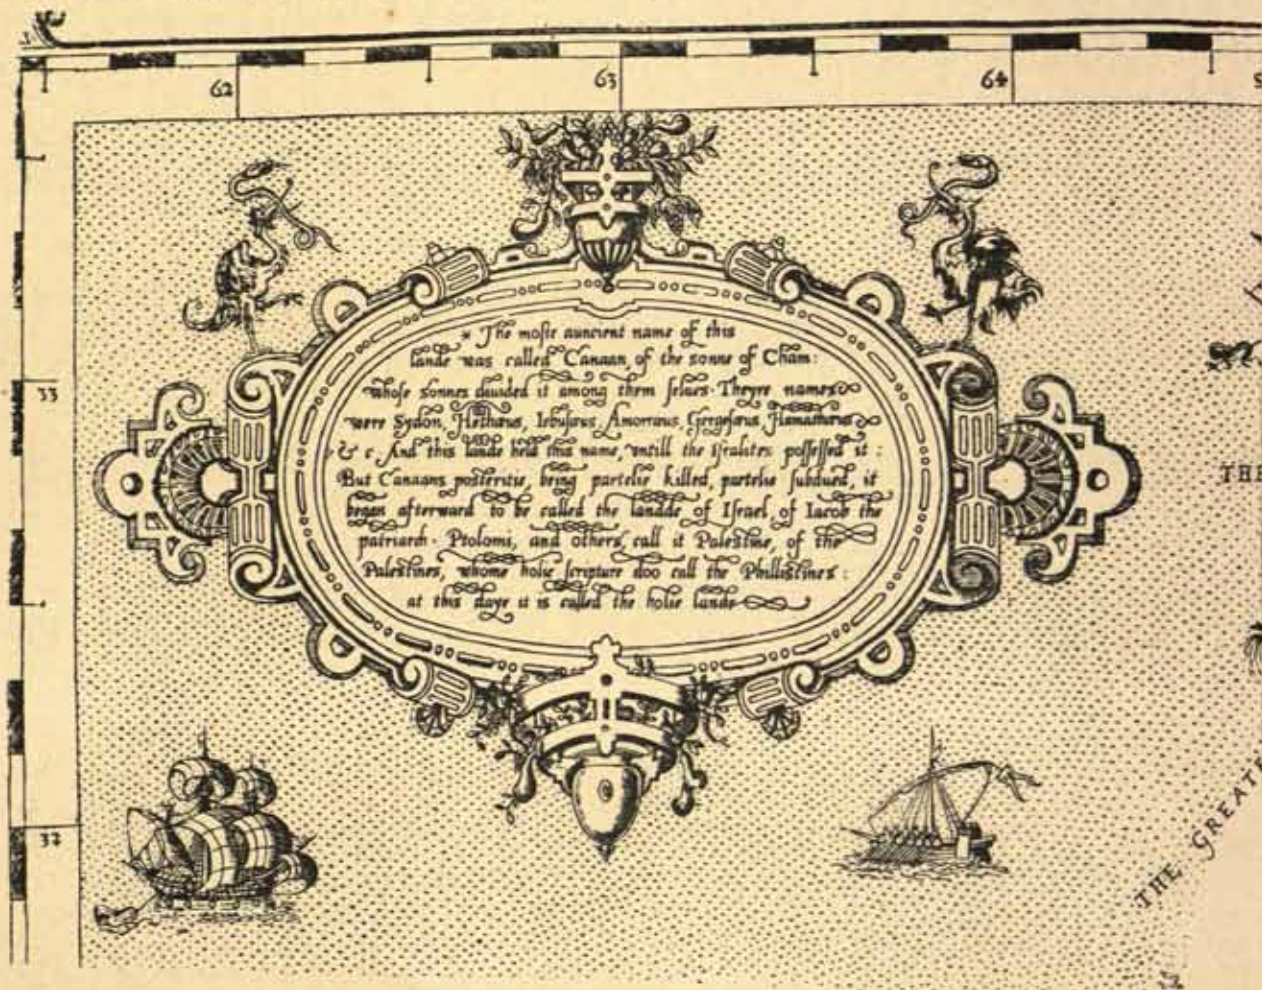 62 63 64
33
32
* The moste auncient name of this
lande was called Canaan, of the sonne of Cham:
whose sonnes deuided it among them selues. Theyre names
were Sydon, Hethæus, Iebusæus, Amorræus, Gergesæus, Hamathæus
& c. And this lande held this name, untill the Isralites possessed it :
But Canaans posteritie, being partelie killed, partelie subdued, it
began afterward to be called the landde of Israel, of Iacob the
patriarch. Ptolomi, and others, call it Palestine, of the
Palestines, whome holie scripture doo call the Phillistines :
at this daye it is called the holie lande
THE
THE GREATE